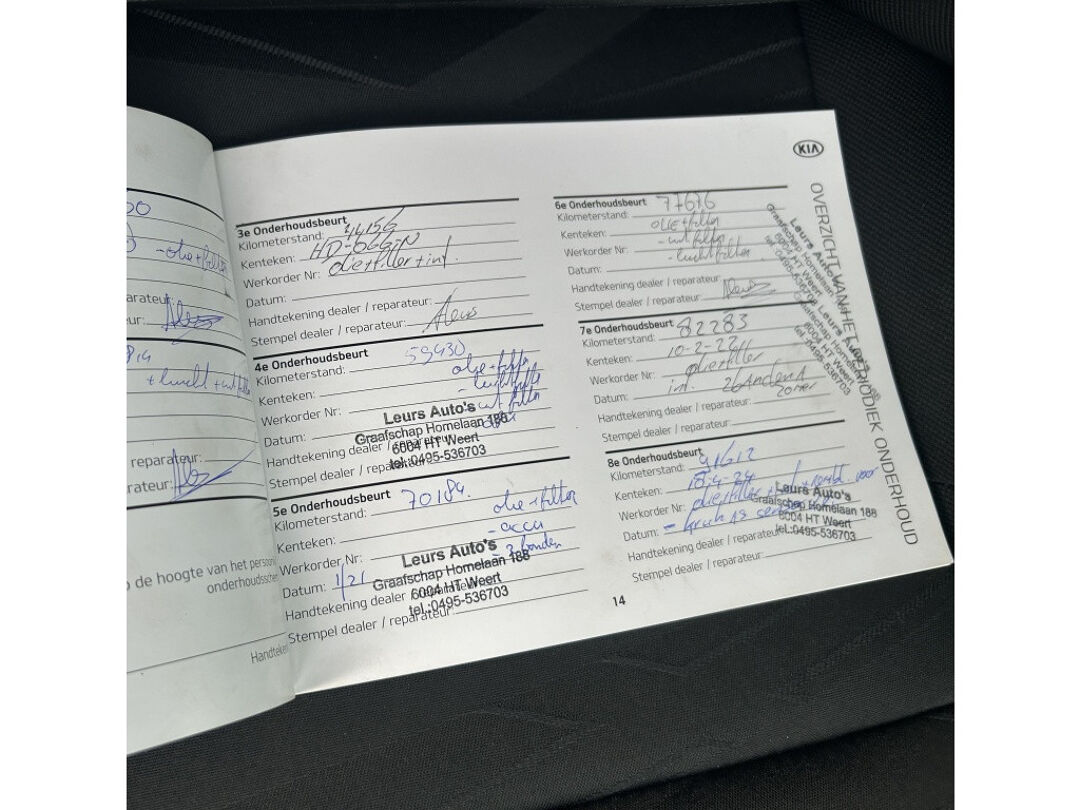 - olie + filter
+ lucht + int filter
reparateur:
de hoogte van het
KIA
OVERZICHT VAN HET PERIODIEK ONDERHOUD
3e Onderhoudsbeurt
Kilometerstand: 44156
Kenteken:
Werkorder Nr: olie + filter + int.
Datum:
Handtekening dealer / reparateur:
Stempel dealer / reparateur:
4e Onderhoudsbeurt
Kilometerstand: 59430
Kenteken: olie + filter
- luchtfilter
Werkorder Nr: - int filter
Datum:
Handtekening dealer / reparateur:
Stempel dealer / reparateur:
Leurs Auto's
Graafschap Homelaan 188
6004 HT Weert
tel.:0495-536703
5e Onderhoudsbeurt
Kilometerstand: 70184.
Kenteken: olie + filter
Werkorder Nr: - accu
Datum: 1/21 - 2 banden
Handtekening dealer / reparateur:
Stempel dealer / reparateur:
Leurs Auto's
Graafschap Homelaan 188
6004 HT Weert
tel.:0495-536703
6e Onderhoudsbeurt
Kilometerstand: 77676
Kenteken: olie + filter
Werkorder Nr: - int filter
Datum: - luchtfilter
Handtekening dealer / reparateur:
Stempel dealer / reparateur:
Leurs Auto's
Graafschap Homelaan 188
6004 HT Weert
tel.:0495-536703
7e Onderhoudsbeurt
Kilometerstand: 82283
Kenteken: 10-2-22
Werkorder Nr: olie + filter
Datum: int.
Handtekening dealer / reparateur:
Stempel dealer / reparateur:
Leurs Auto's
Graafschap Homelaan 188
6004 HT Weert
tel.:0495-536703
8e Onderhoudsbeurt
Kilometerstand: 91612
Kenteken: 18-4-24
Werkorder Nr: olie + filter
Datum:
Handtekening dealer / reparateur:
Stempel dealer / reparateur:
Leurs Auto's
Graafschap Homelaan 188
6004 HT Weert
tel.:0495-536703
14